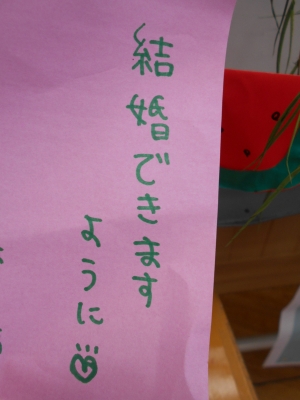 結婚できます
ように